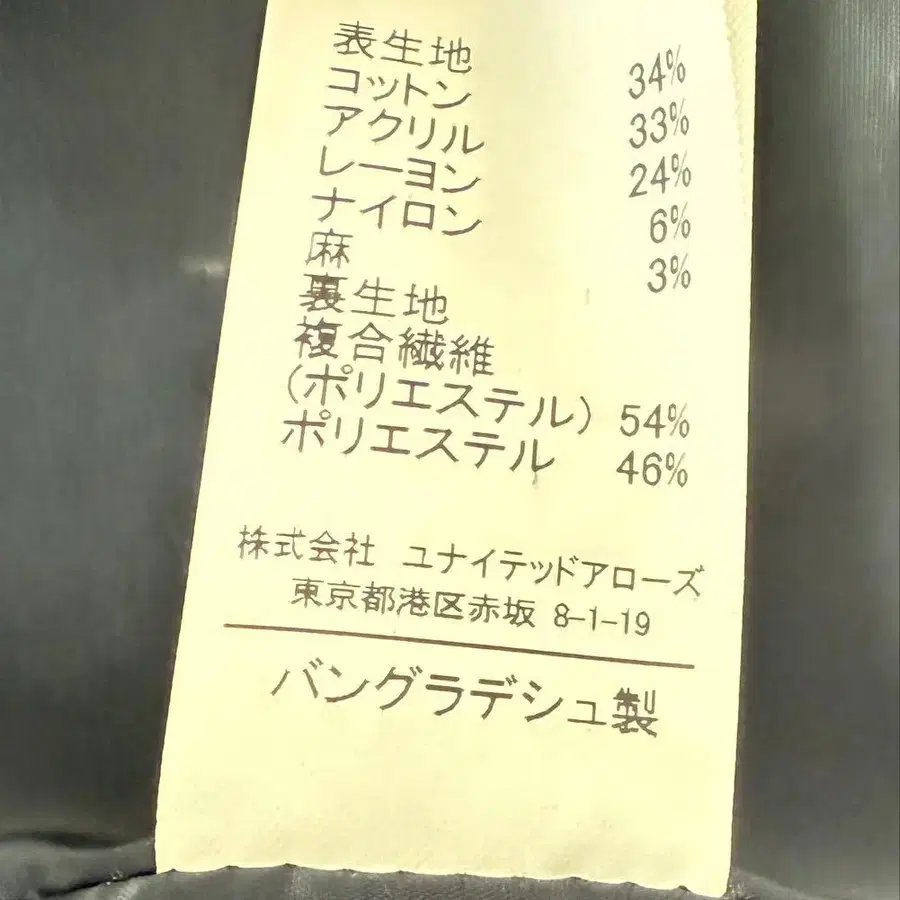 表生地
コットン 34%
アクリル 33%
レーヨン 24%
ナイロン 6%
麻 3%
裏生地
複合繊維
(ポリエステル) 54%
ポリエステル 46%
株式会社 ユナイテッドアローズ
東京都港区赤坂 8-1-19
バングラデシュ製